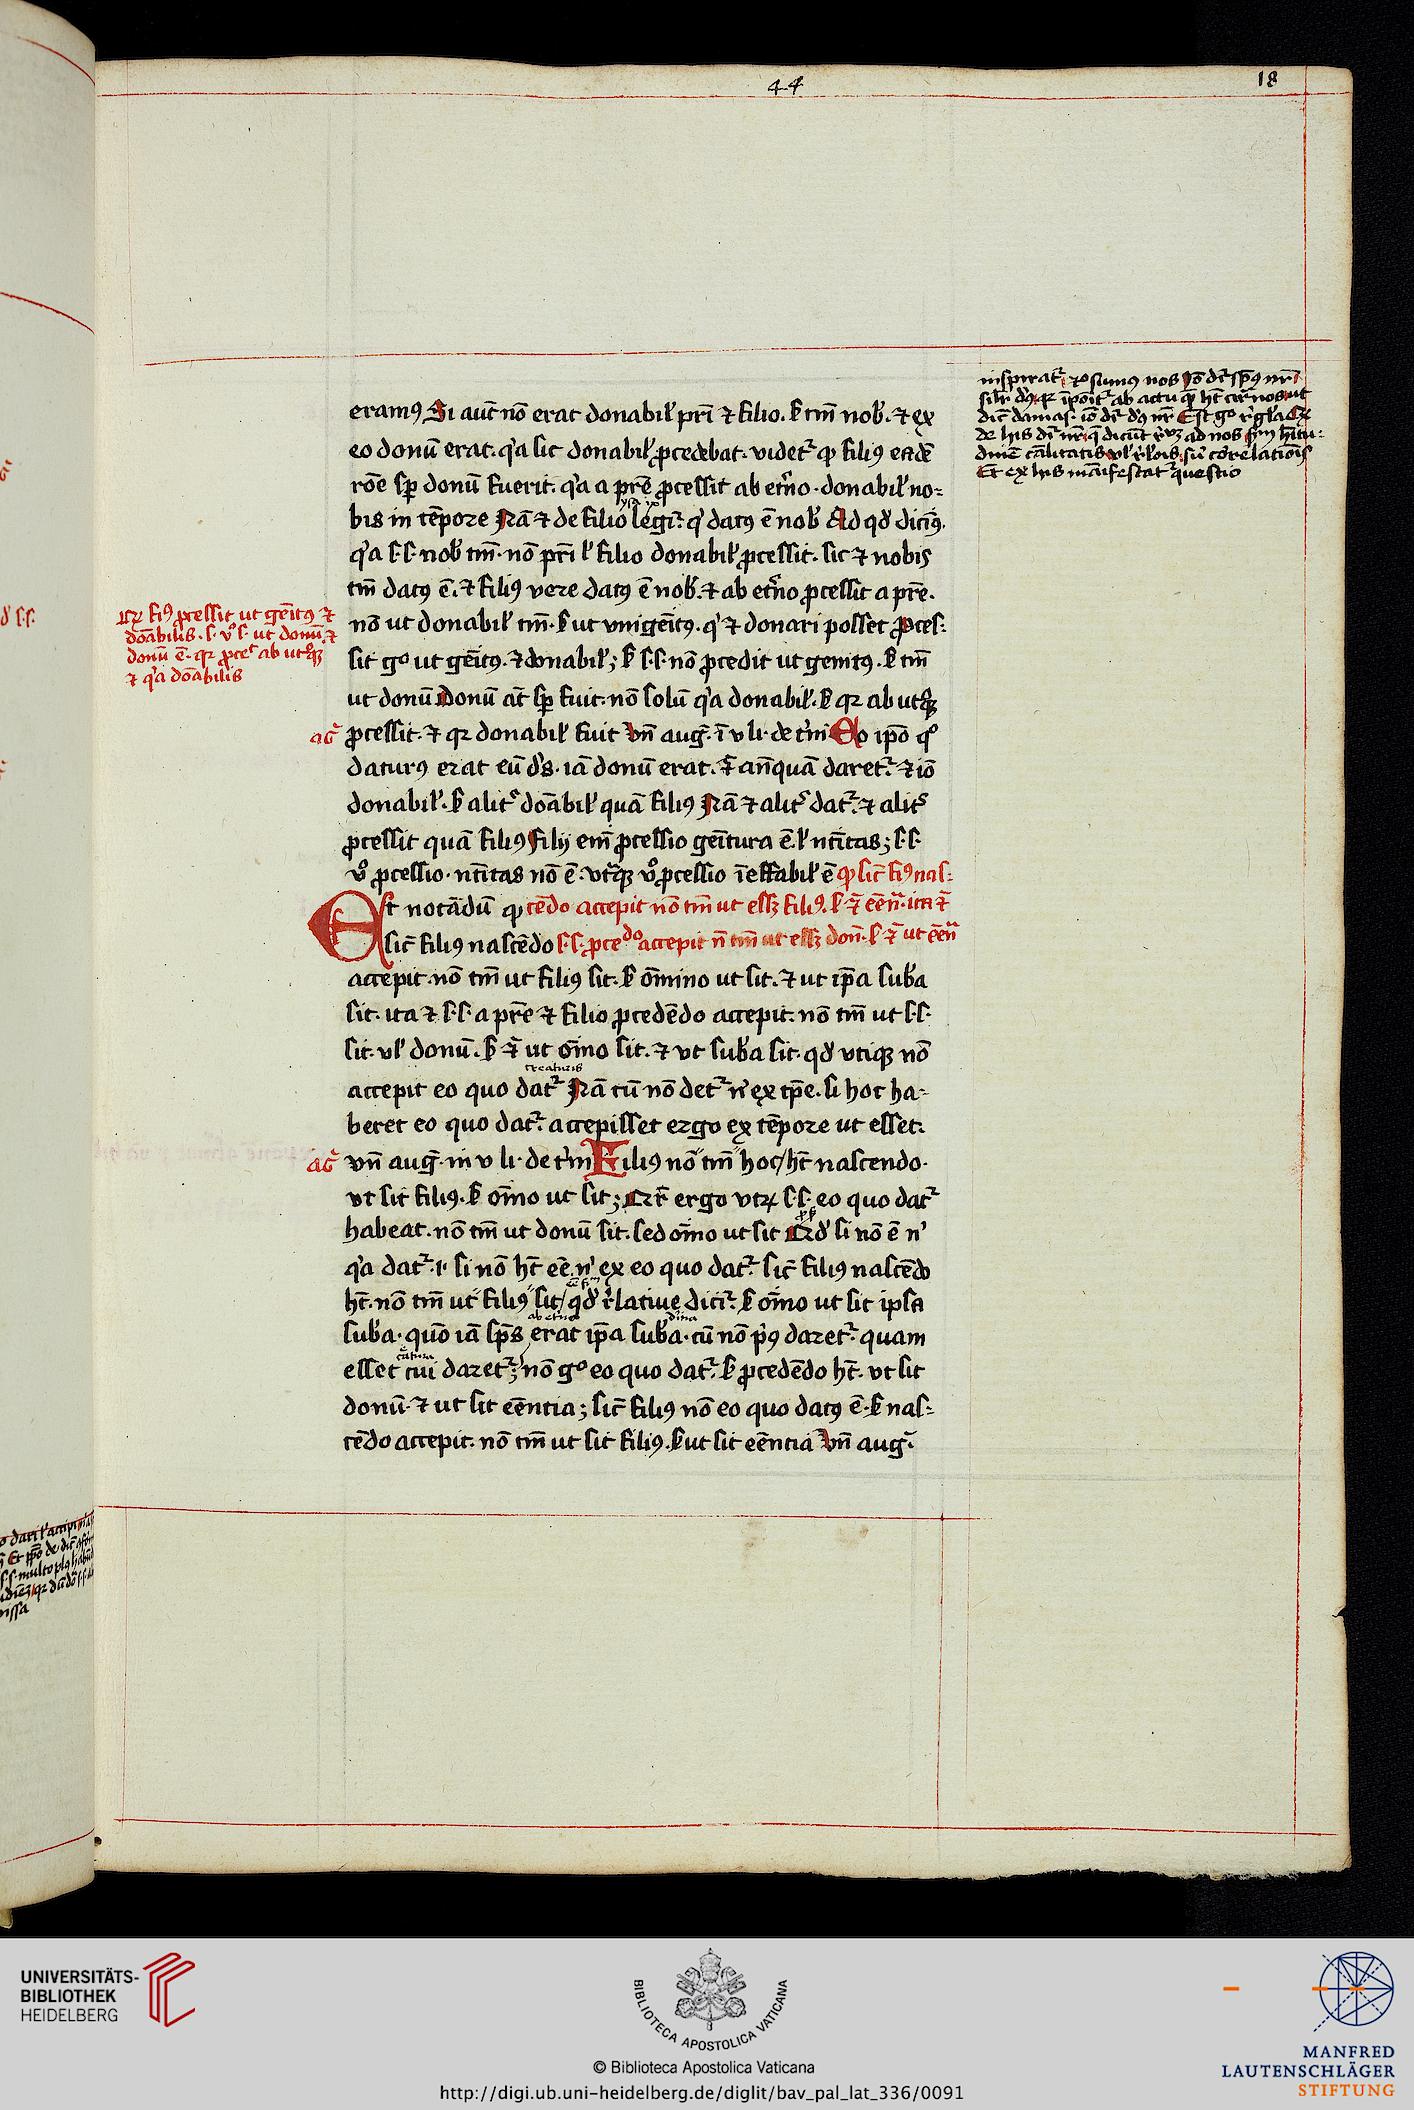 44
18
eramꝯ Si aut̄ nō erat donabil' pr̄i ⁊ filio. s; tm̄ nob'. ⁊ ex
eo donū erat. q'a sic donabil' ꝓcedebat. videt᷑ ꝙ filiꝯ eadē
rōe sꝑ donū fuerit. q'a a pr̄e ꝓcessit ab et̄no. donabil' no-
bis in tēpore Nā ⁊ de filio legit᷑. q' datꝯ ē nob' Ad qd' dicimꝯ.
q'a s. s. nob' tm̄. nō pr̄i l' filio donabil' ꝓcessit. sic ⁊ nobis
tm̄ datꝯ ē. ⁊ filiꝯ vere datꝯ ē nob'. ⁊ ab et̄no ꝓcessit a pr̄e.
nō ut donabil' tm̄. s; ut vnigēitꝯ. q' ⁊ donari posset ꝓces-
sit gͦ ut gēitꝯ. ⁊ donabil'; s; s. s. nō ꝓcedit ut genitꝯ. s; tm̄
ut donū Donū at̄ sꝑ fuit. nō solū q'a donabil'. s; qꝛ ab utͦqꝫ
ꝓcessit. ⁊ qꝛ donabil' fuit Vn̄ auḡ. ī v li. de t'ni Eo ip̄o qͦ
daturꝯ erat eū d's. iā donū erat. ⁊ an̄quā daret᷑. ⁊ iō
donabil'. s; alit᷑ dōabil' quā filiꝯ Nā ⁊ alit᷑ dat᷑. ⁊ alit᷑
ꝓcessit quā filiꝯ Filij em̄ ꝓcessio gēitura ē. l' nt̄itas; s. s.
vͦ ꝓcessio. nt̄itas nō ē. vtͣqꝫ vͦ ꝓcessio īeffabil' ē ꝙ sic̄ fiꝯ nas-
Est notādū ꝙ cēdo accepit nō tm̄ ut essꝫ filiꝯ. s; ⁊ eēn̄. ita ⁊
sic̄ filiꝯ nascēdo s. s. ꝓcedͦ accepit n̄ tm̄ ut essꝫ don̄. s; ⁊ ut eēn̄
accepit. nō tm̄ ut filiꝯ sit. s; ōmino ut sit. ⁊ ut ip̄a sub'a
sit. ita ⁊ s. s. a pr̄e ⁊ filio ꝓcedēdo accepit. nō tm̄ ut s. s.
sit. vl' donū. s; ⁊ ut om̄o sit. ⁊ vt sub'a sit. qd' vtiqꝫ nō
creaturis
accepit eo quo dat᷑ Nā cū nō det᷑ n' ex tp̄e. si hoc ha-
beret eo quo dat᷑. accepisset ergo ex tēpore ut esset.
vn̄ auḡ. in v li. de t'ni Filiꝯ nō tm̄ hoc ht̄ nascendo.
vt sit filiꝯ. s; om̄o ut sit; Qr̄ ergo vtꝝ s. s. eo quo dat᷑
habeat. nō tm̄ ut donū sit. sed om̄o ut sit Qd' si nō ē n'
q'a dat᷑. i. si nō ht̄ eē. n' ex eo quo dat᷑. sic̄ filiꝯ nascēdo
ht̄. nō tm̄ ut filiꝯ sit qd' r̄lative dicit᷑. s; om̄o ut sit ipsa
ab et̄no dīna
sub'a. quō iā sp̄s erat ip̄a sub'a. cū nō p'ꝯ daret᷑. quam
esset cui daret᷑; nō gͦ eo quo dat᷑. s; ꝓcedēdo ht̄. vt sit
donū. ⁊ ut sit eēntia; sic̄ filiꝯ nō eo quo datꝯ ē. s; nas-
cēdo accepit. nō tm̄ ut sit filiꝯ. s; ut sit eēntia Vn̄ aug᷑.
Qꝛ fiꝯ ꝓcessit ut gēitꝯ ⁊
dōabilis. s. vͦ s. ut donū. ⁊
donū ē. qꝛ ꝓced᷑ ab utͦqꝫ
⁊ q'a dōabilis
ag᷑
ag᷑
inspirat᷑. quo sumꝯ nos Iō dr̄ sp̄ꝯ nr̄
dic̄ damas. iō dr̄ dꝯ nr̄ Est gͦ
Et ex his māifestat᷑ questio
UNIVERSITÄTS-
BIBLIOTHEK
HEIDELBERG
BIBLIOTECA APOSTOLICA VATICANA
© Biblioteca Apostolica Vaticana
http://digi.ub.uni-heidelberg.de/diglit/bav_pal_lat_336/0091
MANFRED
LAUTENSCHLÄGER
STIFTUNG